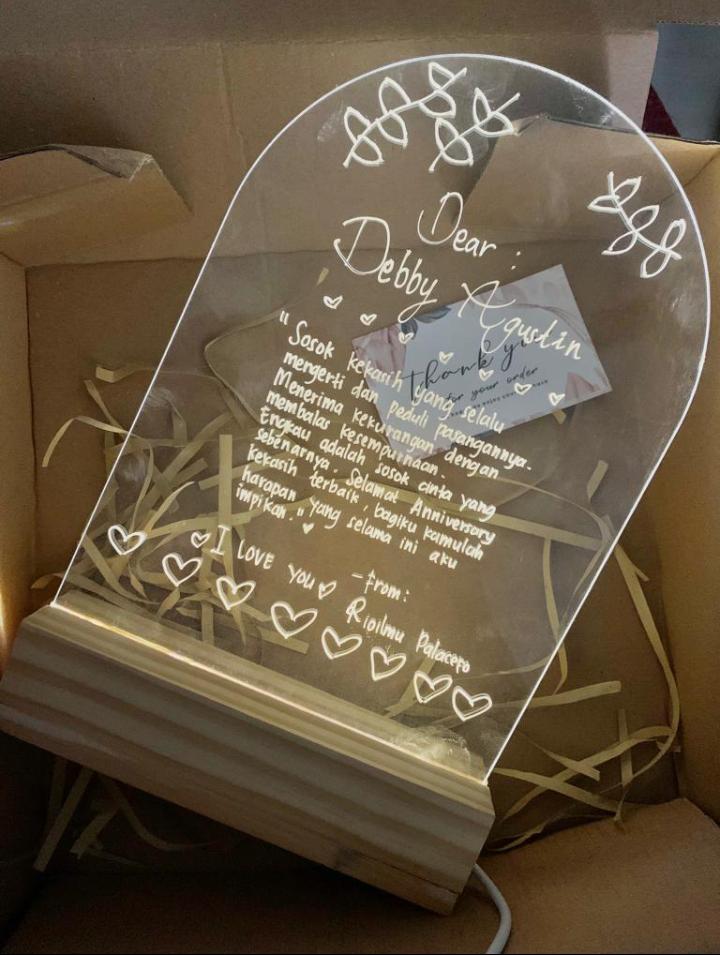 Dear :
Debby Agustin
"Sosok kekasih yang selalu
mengerti dan peduli pasangannya.
Menerima kekurangan dengan
membalas kesempurnaan.
Engkau adalah sosok cinta yang
sebenarnya. Selamat Anniversary
kekasih terbaik, bagiku kamulah
harapan yang selama ini aku
impikan."
I LOVE YOU
-from:
Rioilmu Palacero
thank you
for your order